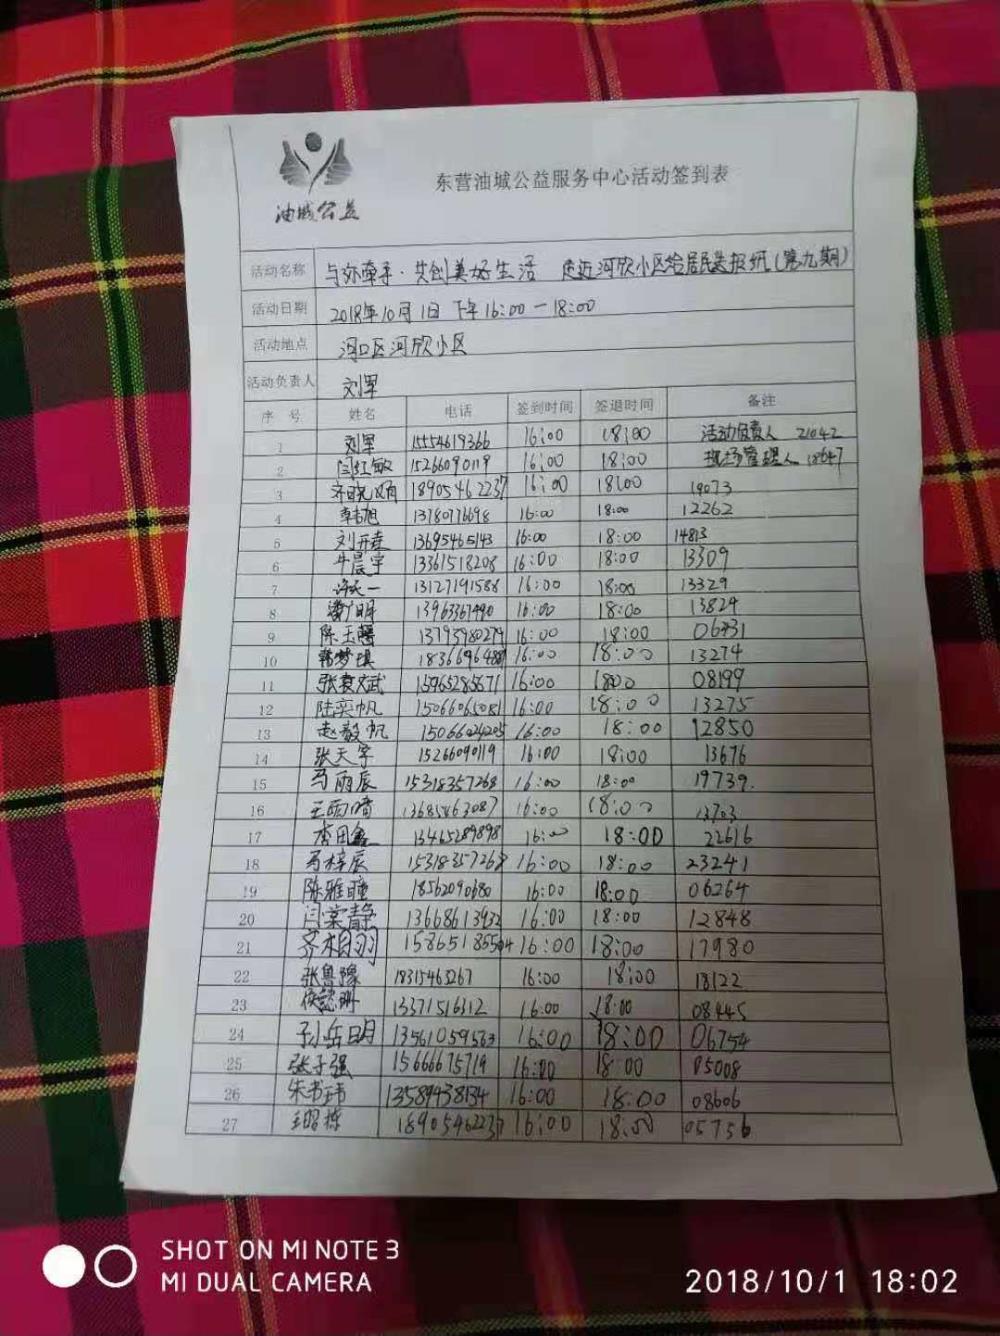 油城公益
东营油城公益服务中心活动签到表
活动名称 与你牵手·共创美好生活 走近河欣小区给居民送报纸(第九期)
活动日期 2018年10月1日 下午16:00-18:00
活动地点 河口区河欣小区
活动负责人 刘军
序号 姓名 电话 签到时间 签退时间 备注
1 刘军 15554619366 16:00 18:00 活动负责人 21042
2 闫红敏 15266090119 16:00 18:00 现场管理人 18647
3 18905462237 16:00 18:00 19073
4 韩旭 16:00 18:00 12262
5 刘开垚 13695465143 16:00 18:00 14813
6 牛晨宇 13361518208 16:00 18:00 13309
7 许天一 13127191588 16:00 18:00 13329
8 16:00 18:00 13824
9 陈玉馨 16:00 18:00
10 韩梦琪 16:00 18:00 13274
11 16:00 1800 08199
12 陆奕帆 15066065081 16:00 18:00 13275
13 赵毅帆 16:00 18:00 12850
14 张天宇 15266090119 16:00 18:00 13676
15 马丽辰 15318357268 16:00 18:00 19739
16 王雨晴 13685463087 16:00 18:00 13703
17 李田鑫 13465289898 16:00 18:00 22616
18 马梓辰 15318357268 16:00 18:00 23241
19 陈雅瞳 18562090680 16:00 18:00 06264
20 闫棠静 13668613932 16:00 18:00 12848
21 齐相羽 16:00 18:00 17980
22 张鲁豫 18315463267 16:00 18:00 18122
23 侯懿珊 13371516312 16:00 18:00 08445
24 孙岳明 13561059563 16:00 18:00 06754
25 张子强 15666675719 16:00 18:00 05008
26 朱书玮 13589438134 16:00 18:00 08606
27 18905462237 16:00 18:00 05736
SHOT ON MI NOTE 3
MI DUAL CAMERA
2018/10/1 18:02